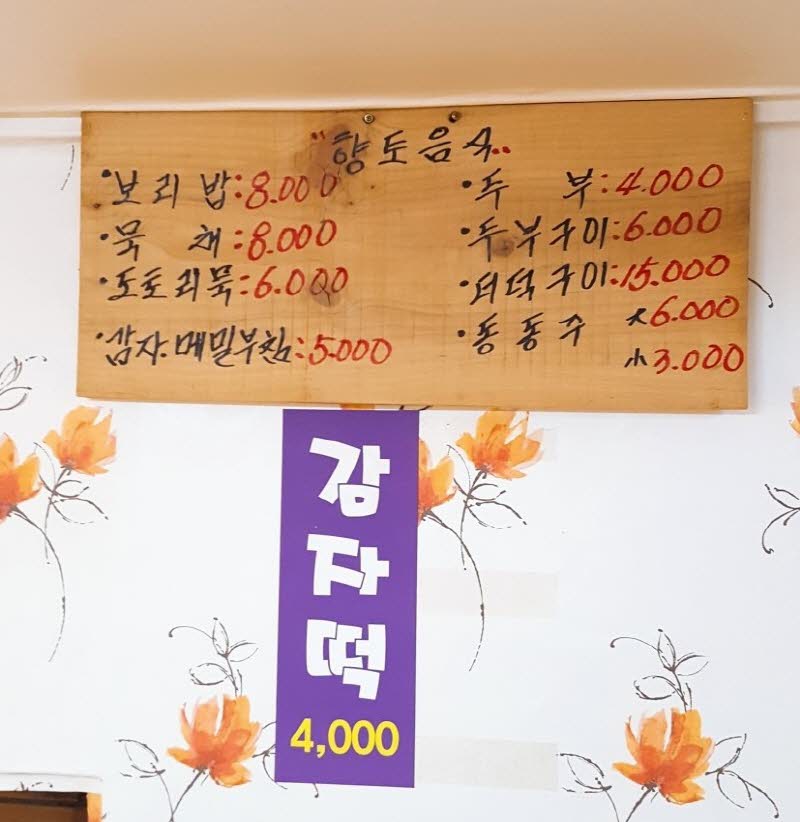 "향토음식"
·보리밥:8.000
·묵 채:8.000
·도토리묵:6.000
·감자.메밀부침:5.000
·두 부:4.000
·두부구이:6.000
·더덕구이:15.000
·동동주 大6.000
小3.000
감자떡
4,000